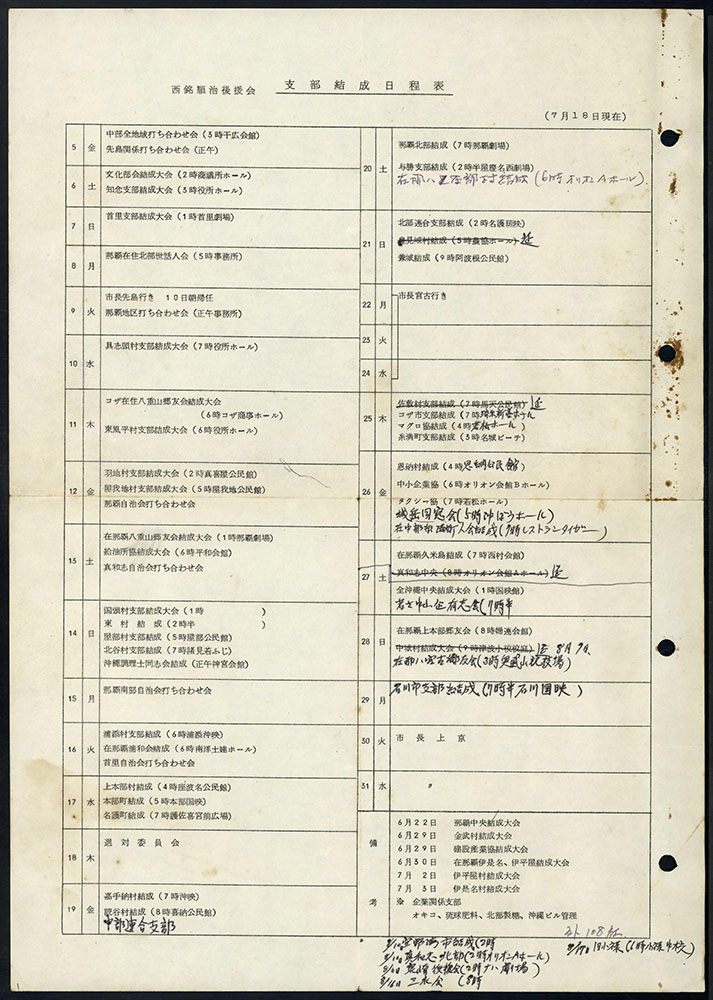 西銘順治後援会 支部結成日程表
(7月18日現在)
5 金 中部全地域打ち合わせ会(3時干広会館)
先島関係打ち合わせ会(正午)
6 土 文化部会結成大会(2時商議所ホール)
知念支部結成大会(3時役所ホール)
7 日 首里支部結成大会(1時首里劇場)
8 月 那覇在住北部世話人会(5時事務所)
9 火 市長先島行き 10日朝帰任
那覇地区打ち合わせ会(正午事務所)
10 水 具志頭村支部結成大会(7時役所ホール)
11 木 コザ在住八重山郷友会結成大会
(6時コザ商事ホール)
東風平村支部結成大会(6時役所ホール)
12 金 羽地村支部結成大会(2時真喜屋公民館)
屋我地村支部結成大会(5時屋我地公民館)
那覇自治会打ち合わせ会
13 土 在那覇八重山郷友会結成大会(1時那覇劇場)
給油所協結成大会(6時平和会館)
真和志自治会打ち合わせ会
14 日 国頭村支部結成大会(1時 )
東村結成(2時半 )
屋部村支部結成(5時屋部公民館)
北谷村支部結成(7時諸見若ふじ)
沖縄調理士同志会結成(正午神宮会館)
15 月 那覇南部自治会打ち合わせ会
16 火 浦添村支部結成(6時浦添沖映)
在那覇浦和会結成(6時南洋土建ホール)
首里自治会打ち合わせ会
17 水 上本部村結成(4時座波名公民館)
本部町結成(5時本部国映)
名護町結成(7時護佐喜宮前広場)
18 木 選対委員会
19 金 嘉手納村結成(7時沖映)
読谷村結成(8時喜納公民館)
中部連合支部
20 土 那覇北部結成(7時那覇劇場)
与勝支部結成(2時半屋慶名西劇場)
(6時オリオンAホール)
21 日 北部連合支部結成(2時名護琉映)
豊見城村結成(5時農協ホール) 延
兼城結成(9時阿波根公民館)
22 月 市長宮古行き
23 火
24 水
25 木 佐敷村支部結成(7時馬天公民館) 延
コザ市支部結成(7時琉米新善ホール)
マグロ協結成(4時若松ホール)
糸満町支部結成(3時名城ビーチ)
26 金 恩納村結成(4時恩納公民館)
中小企業協(6時オリオン会館Bホール)
タクシー協(7時若松ホール)
城岳同窓会(5時沖ばうホール)
(7時レストランタイガー)
27 土 在那覇久米島結成(7時西村会館)
真和志中央(8時オリオン会館Aホール) 延
全沖縄中央結成大会(1時国映館)
若士中小企有志会(7時半
28 日 在那覇上本部郷友会(8時婦連会館)
中城村結成大会(9時津波小校校庭) 延 8月9日
在那八宮古郷友会(3時奥武山競技場)
29 月 石川市支部結成(7時半石川国映)
30 火 市長上京
31 水 〃
備考 6月22日 那覇中央結成大会
6月29日 金武村結成大会
6月29日 建設産業協結成大会
6月30日 在那覇伊是名、伊平屋結成大会
7月2日 伊平屋村結成大会
7月3日 伊是名村結成大会
※ 企業関係支部
オキコ、琉球肥料、北部製糖、沖縄ビル管理